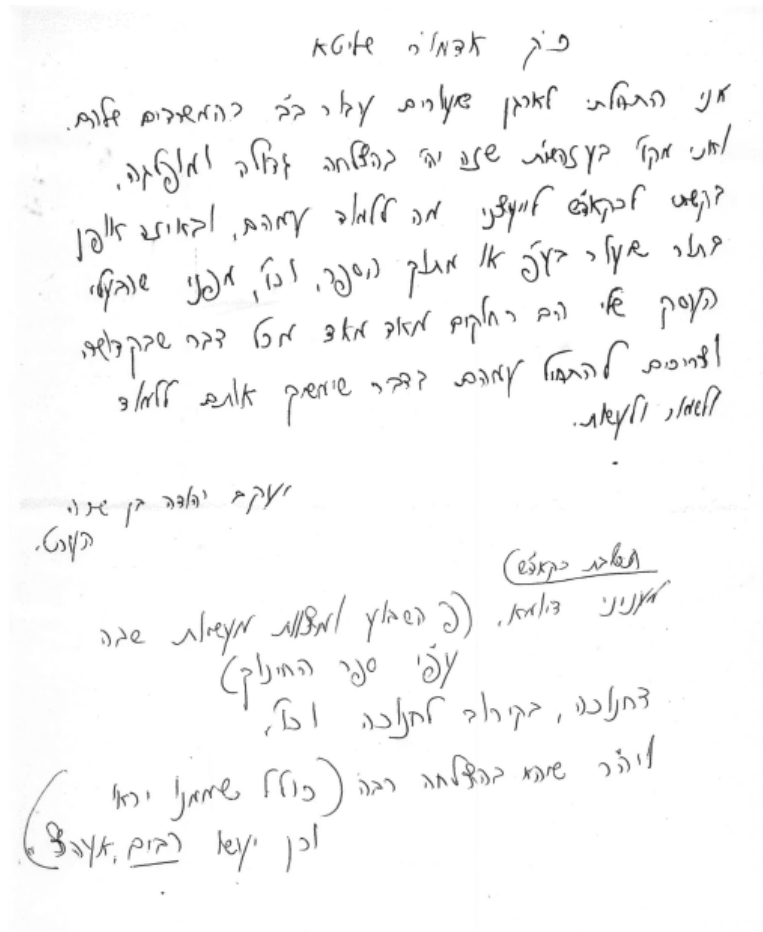 כ"ק אדמו"ר שליט"א
אני התחלתי לארגן שעורים עבור בנ"י בהמשרדים שלהם.
ואני מקוה בעזהשי"ת שזה יהי' בהצלחה גדולה ומופלגה,
בקשתי לכקאד"ש לייעצני מה ללמוד עמהם, ובאיזה אופן
בתור שעור בע"פ או מתוך הספר, וכו', מפני שהבעלי
העסק שלי הם רחוקים מאד מאד מכל דבר שבקדושה
וצריכים להתחיל עמהם בדבר שימשוך אותם ללמוד
לשמור ולעשות.
יעקב יהודה בן שרה
העכט.
תשובת כקאד"ש
מעניני דיומא, (פ' השבוע ומצוות מעשיות שבה
עפ"י ספר החינוך)
דחנוכה, בקירוב לחנוכה וכו',
ויה"ר שיהא בהצלחה רבה (כולל שממנו יראו
וכן יעשו רבים, אזכיר עה"צ